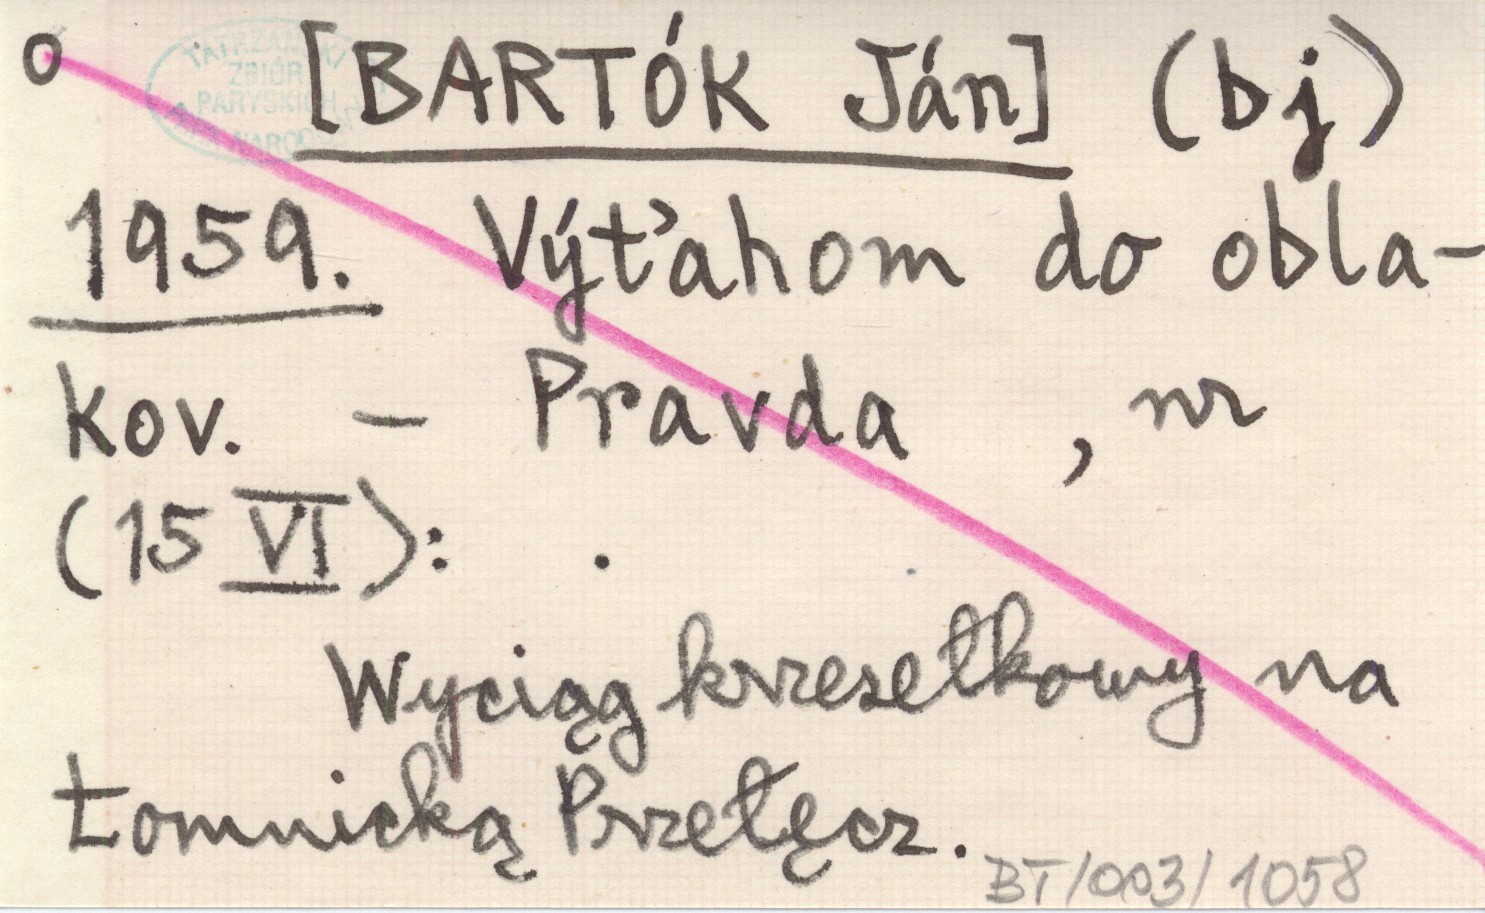 o [BARTÓK Ján] (bj)
TATRZAŃSKI
ZBIÓR
PARYSKICH
1959. Výťahom do obla-
kov. - Pravda , nr
(15 VI): .
Wyciąg krzesełkowy na
Łomnicką Przełęcz.
BT/003/1058